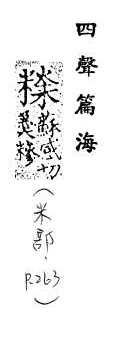 四聲篇海
蘇感切
羹糝
(米部，P.263)